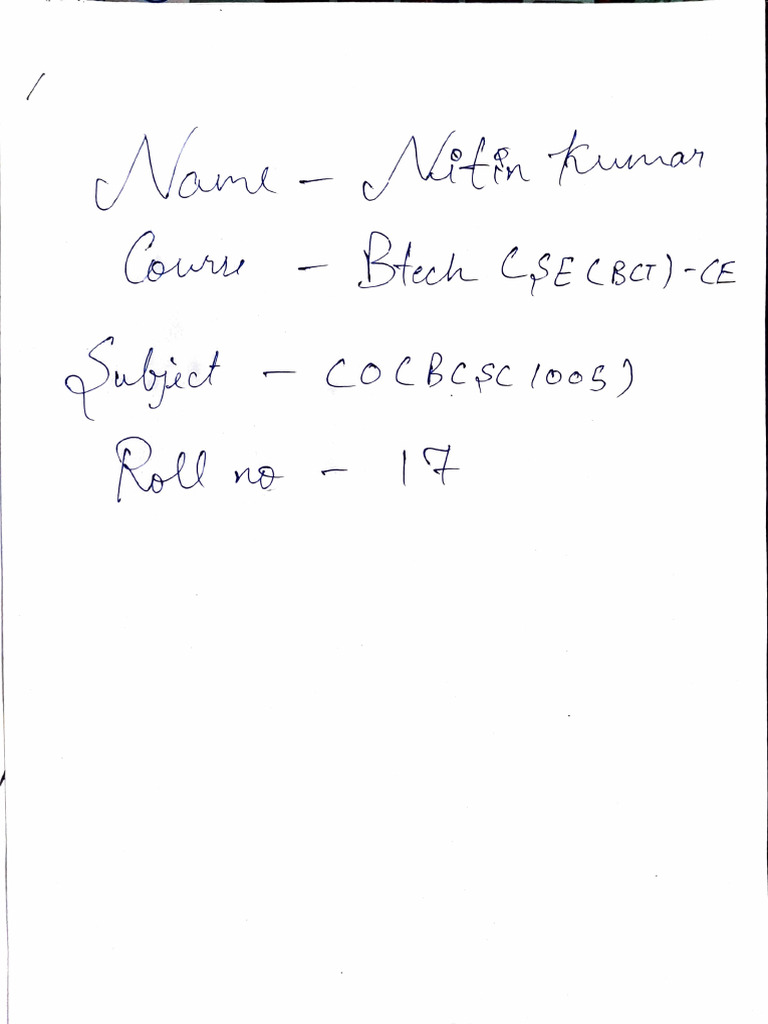 Name - Nitin Kumar
Course - Btech CSE (BCT) - CE
Subject - CO (BCSC 1005)
Roll no - 17